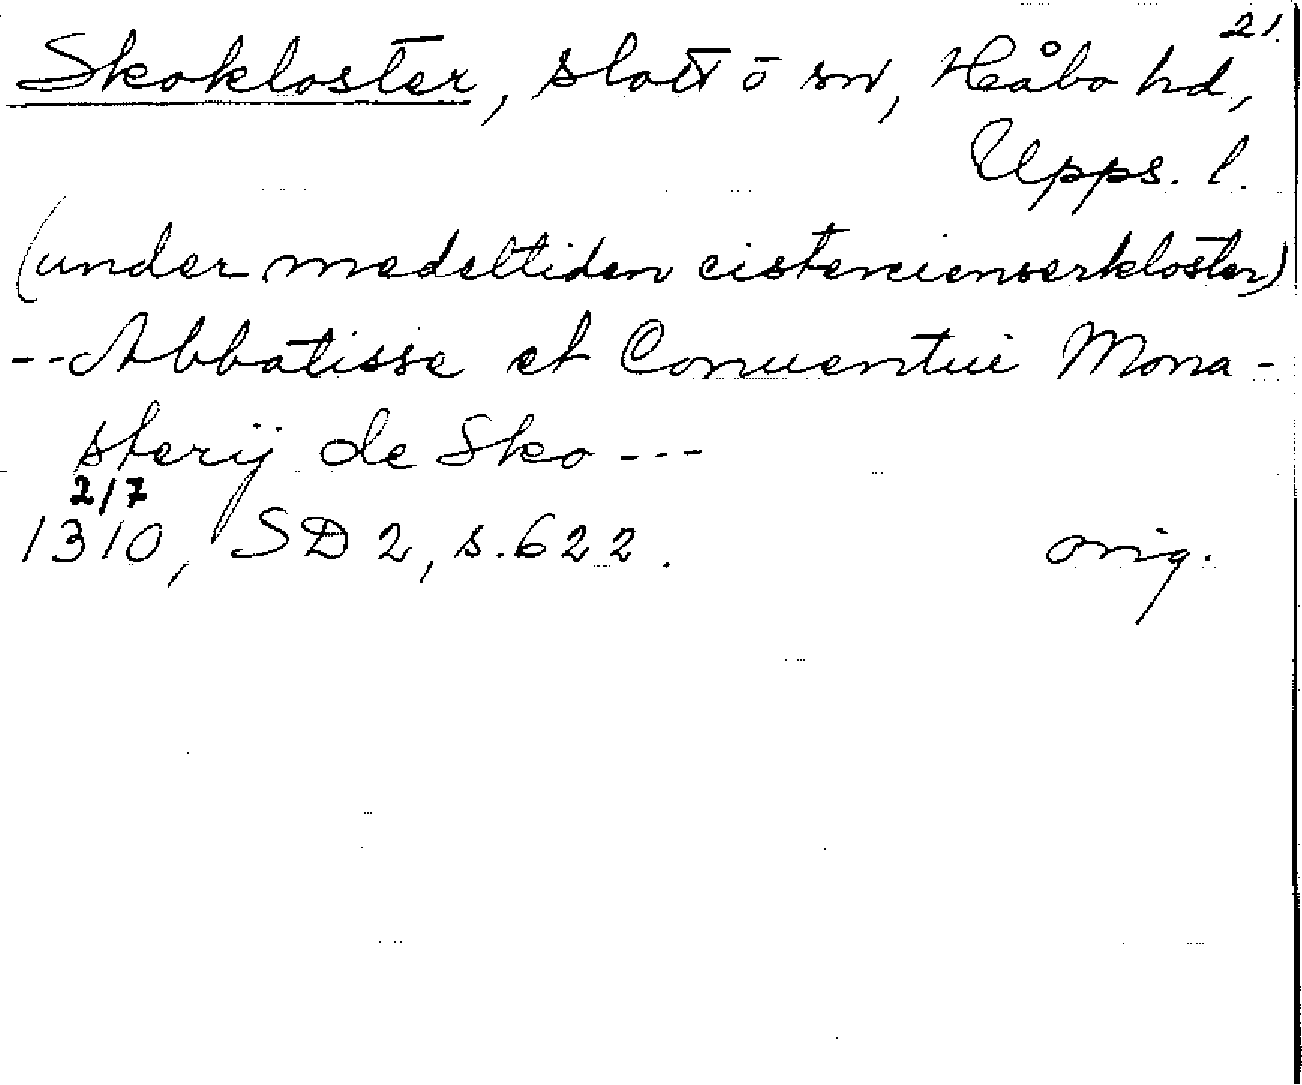 21.
Skokloster, slott o sn, Håbo hd,
Upps. l.
(under medeltiden cistercienserkloster)
--Abbatisse et Conuentui Mona-
sterij de Sko ---
2/7
1310, SD 2, s. 622. orig.